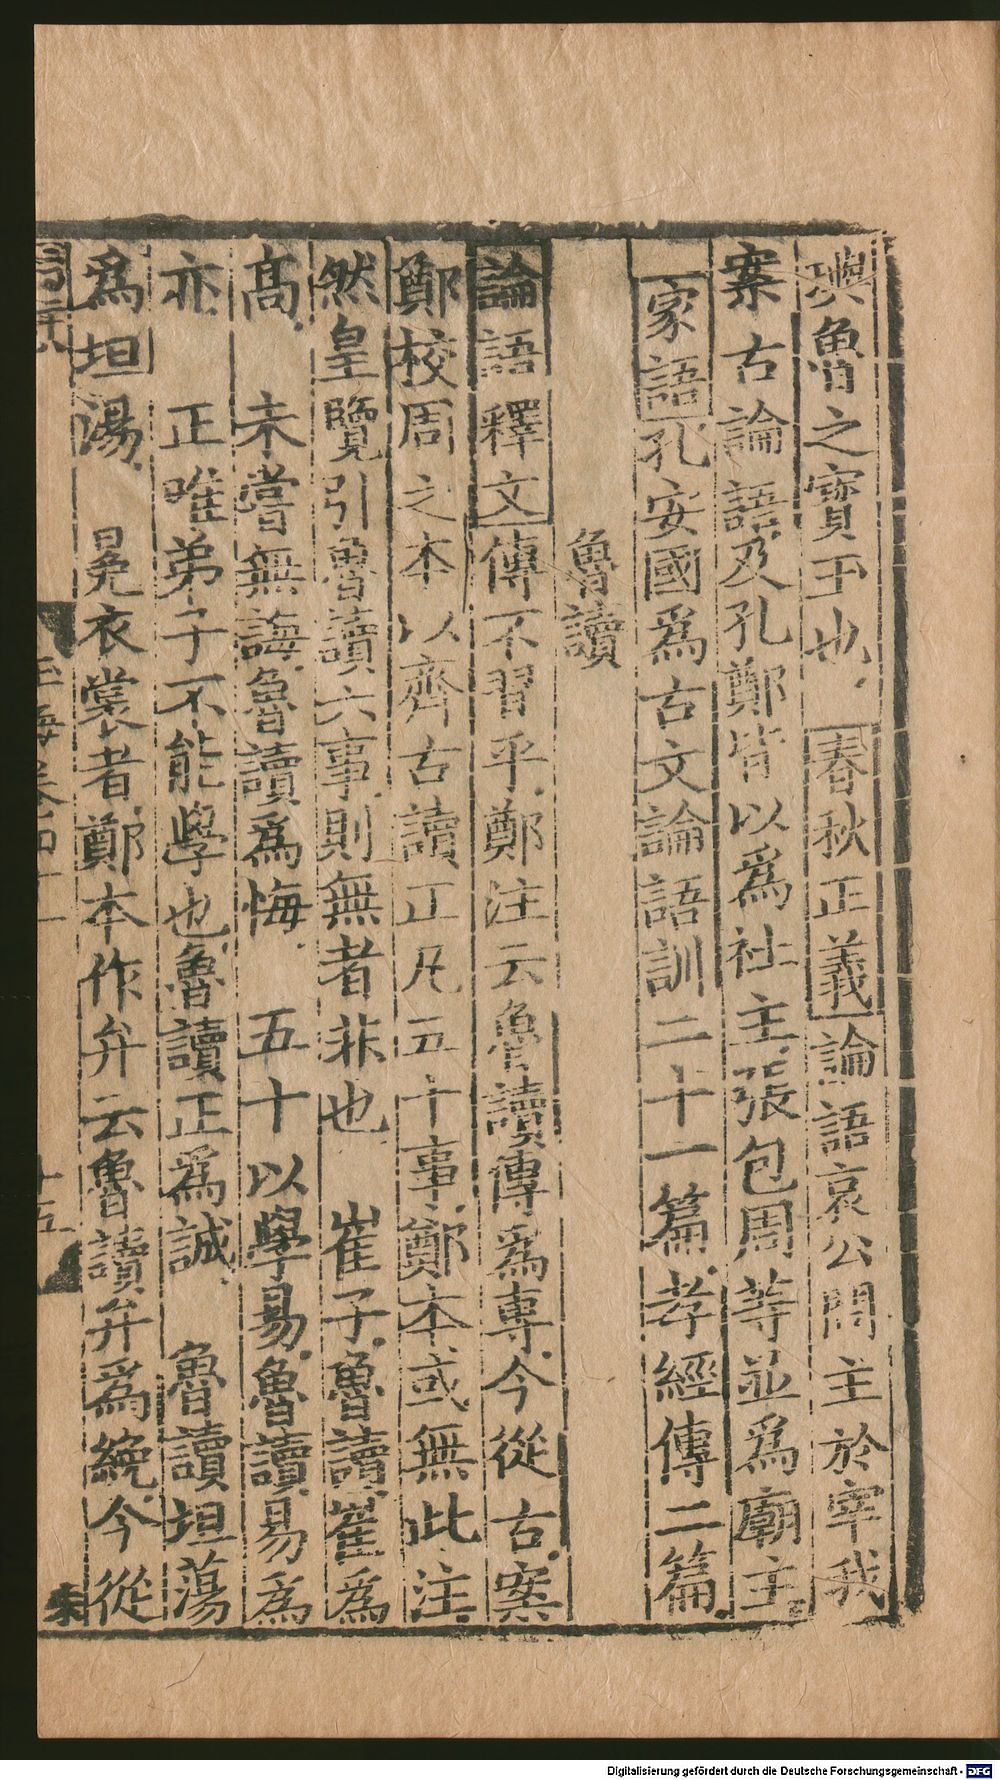 璵魯之寶玉也春秋正義論語哀公問主於宰我
案古論語及孔鄭皆以爲社主張包周等並爲廟主
家語孔安國爲古文論語訓二十一篇孝經傳二篇
魯讀
論語釋文傳不習乎鄭注云魯讀傳爲專今從古案
鄭校周之本以齊古讀正凡五十事鄭本或無此注
然皇覽引魯讀六事則無者非也 崔子魯讀崔爲
高 未嘗無誨魯讀爲悔 五十以學易魯讀易爲
亦 正唯弟子不能學也魯讀正爲誠 魯讀坦蕩
爲坦湯 冕衣裳者鄭本作弁云魯讀弁爲絻今從
玉海卷四十一 十五
Digitalisierung gefördert durch die Deutsche Forschungsgemeinschaft - DFG